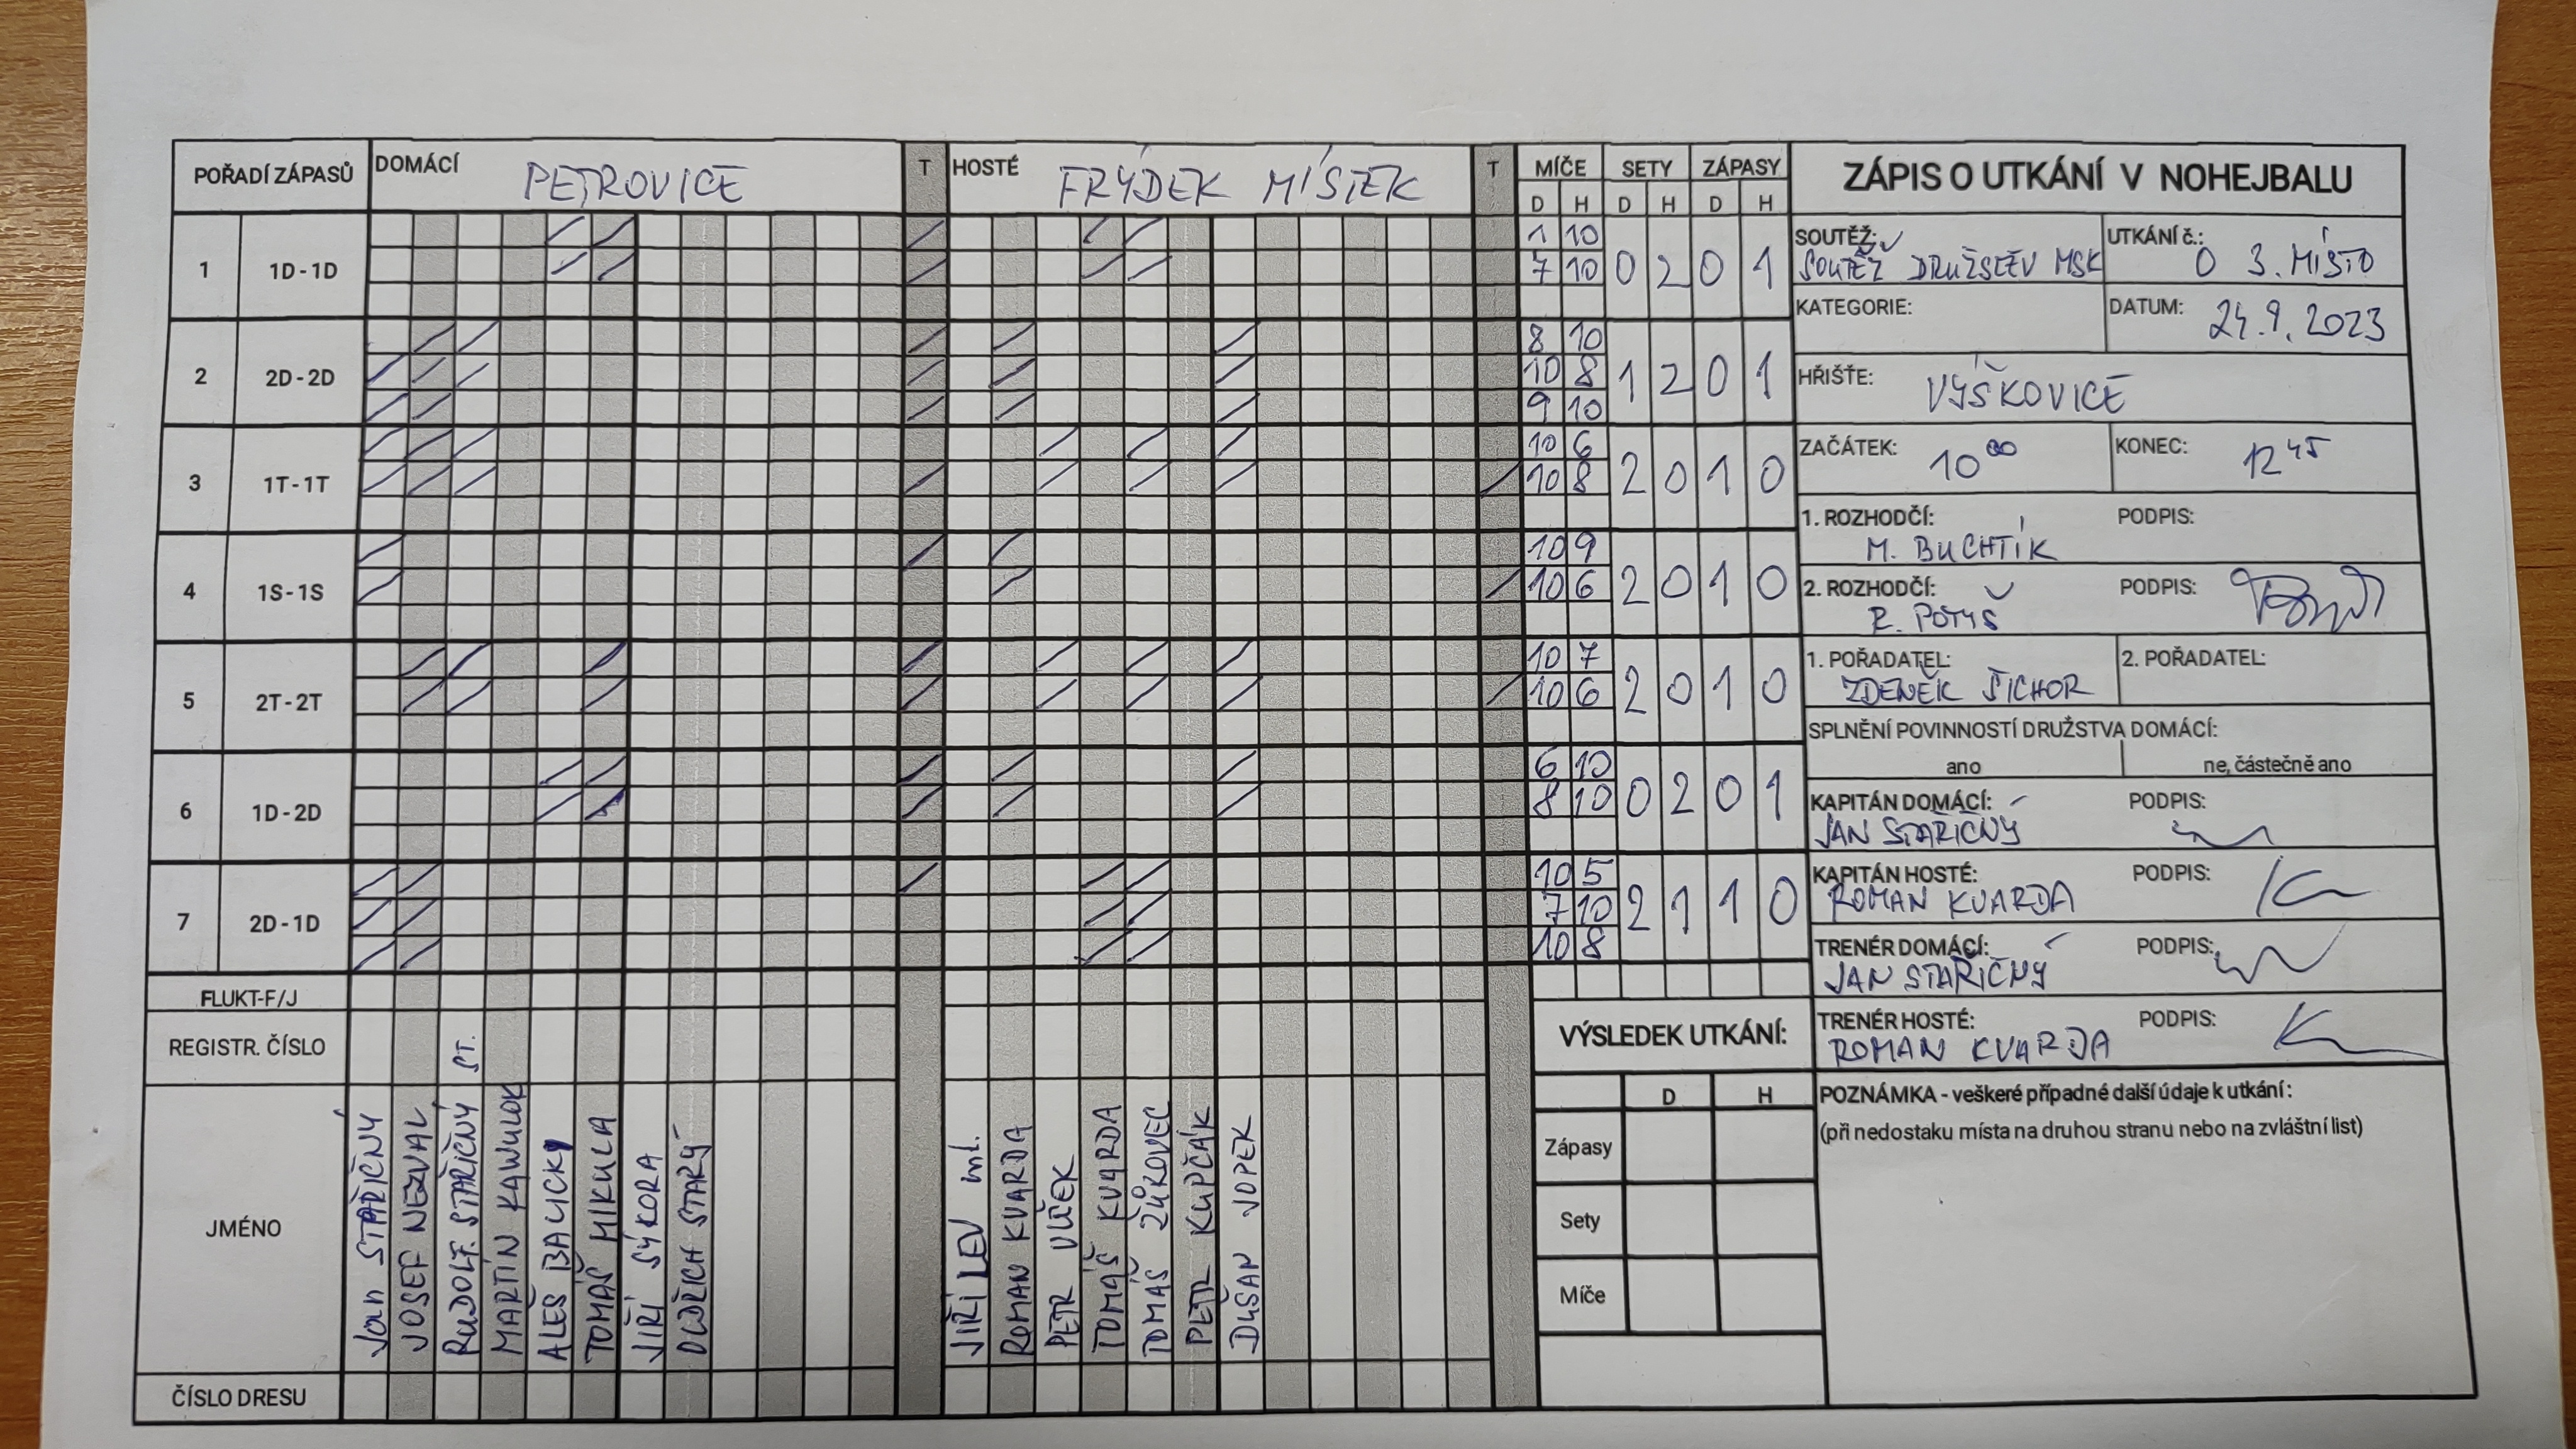 POŘADÍ ZÁPASŮ DOMÁCÍ PETROVICE T HOSTÉ FRÝDEK MÍSTEK T MÍČE SETY ZÁPASY
D H D H D H
1 1D-1D 1 10 0 2 0 1
7 10
2 2D-2D 8 10 1 2 0 1
10 8
9 10
3 1T-1T 10 6 2 0 1 0
10 8
4 1S-1S 10 9 2 0 1 0
10 6
5 2T-2T 10 7 2 0 1 0
10 6
6 1D-2D 6 10 0 2 0 1
8 10
7 2D-1D 10 5 2 1 1 0
7 10
10 8
FLUKT-F/J
REGISTR. ČÍSLO
JMÉNO
JAN STAŘIČNÝ
JOSEF NEZVAL
RUDOLF STAŘIČNÝ ST.
MARTIN KAWULOK
ALEŠ BALICKÝ
TOMÁŠ MIKULA
JIŘÍ SÝKORA
OLDŘICH STARÝ
JIŘÍ LEV ml.
ROMAN KVARDA
PETR VLČEK
TOMÁŠ KVARDA
TOMÁŠ ŽŮRKOVEC
PETR KUPČÁK
DUŠAN VOPEK
ČÍSLO DRESU
VÝSLEDEK UTKÁNÍ:
D H
Zápasy
Sety
Míče
ZÁPIS O UTKÁNÍ V NOHEJBALU
SOUTĚŽ: SOUTĚŽ DRUŽSTEV MSK UTKÁNÍ č.: O 3. MÍSTO
KATEGORIE: DATUM: 24.9.2023
HŘIŠTE: VÝŠKOVICE
ZAČÁTEK: 10 00 KONEC: 12 45
1. ROZHODČÍ: PODPIS:
M. BUCHTÍK
2. ROZHODČÍ: PODPIS:
R. POTYŠ
1. POŘADATEL: 2. POŘADATEL:
ZDENĚK ŠICHOR
SPLNĚNÍ POVINNOSTÍ DRUŽSTVA DOMÁCÍ:
ano ne, částečně ano
KAPITÁN DOMÁCÍ: PODPIS:
JAN STAŘIČNÝ
KAPITÁN HOSTÉ: PODPIS:
ROMAN KVARDA
TRENÉR DOMÁCÍ: PODPIS:
JAN STAŘIČNÝ
TRENÉR HOSTÉ: PODPIS:
ROMAN KVARDA
POZNÁMKA - veškeré případné další údaje k utkání:
(při nedostaku místa na druhou stranu nebo na zvláštní list)